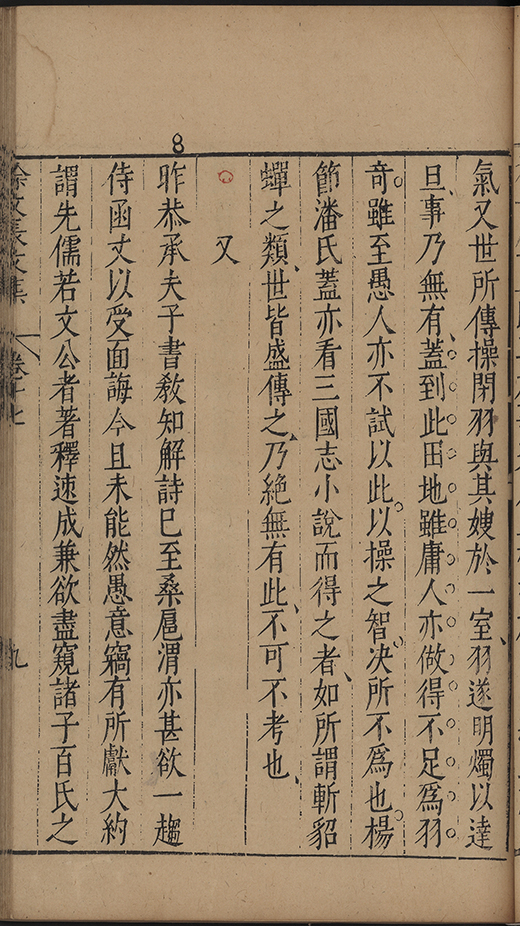 氣又世所傳操閉羽與其嫂於一室羽遂明燭以達
旦事乃無有蓋到此田地雖庸人亦做得不足爲羽
奇雖至愚人亦不試以此以操之智决所不爲也楊
節潘氏蓋亦看三國志小說而得之者如所謂斬貂
蟬之類世皆盛傳之乃絶無有此不可不考也
又
昨恭承夫子書敎知解詩巳至桑扈渭亦甚欲一趨
侍函丈以受面誨今且未能然愚意竊有所獻大約
謂先儒若文公者著釋速成兼欲盡窺諸子百氏之
徐文長文集 卷十七 九
8